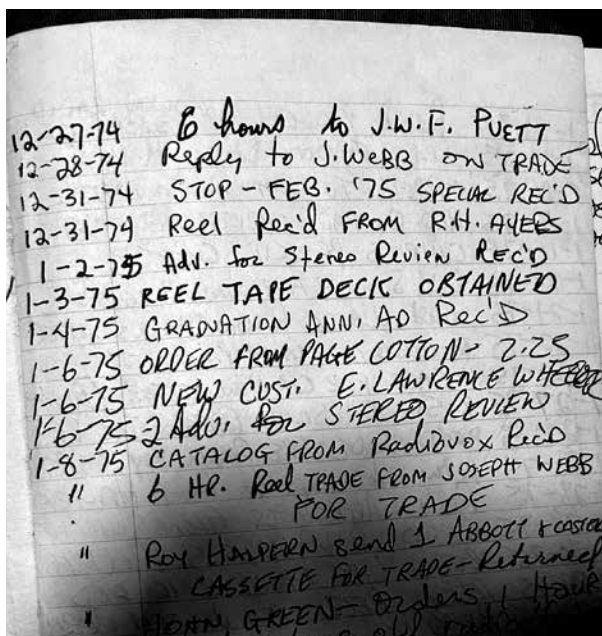 12-27-74 6 hours to J.W.F. PUETT
12-28-74 Reply to J. WEBB ON TRADE
12-31-74 STOP - FEB. '75 SPECIAL REC'D
12-31-74 Reel Rec'd FROM R.H. AYERS
1-2-75 Adv. for Stereo Review REC'D
1-3-75 REEL TAPE DECK OBTAINED
1-4-75 GRADNATION ANN. AD Rec'D
1-6-75 ORDER FROM PAGE COTTON - 2.25
1-6-75 NEW CUST. E. LAWRENCE
1-6-75 2 Adv. for STEREO REVIEW
1-8-75 CATALOG FROM Radiovox Rec'D
" 6 HR. Reel TRADE FROM JOSEPH WEBB
FOR TRADE
" ROY HALPERN send 1 ABBOTT &
CASSETTE FOR TRADE - Returned
" JOHN GREEN - Orders 1 Hour
old radio